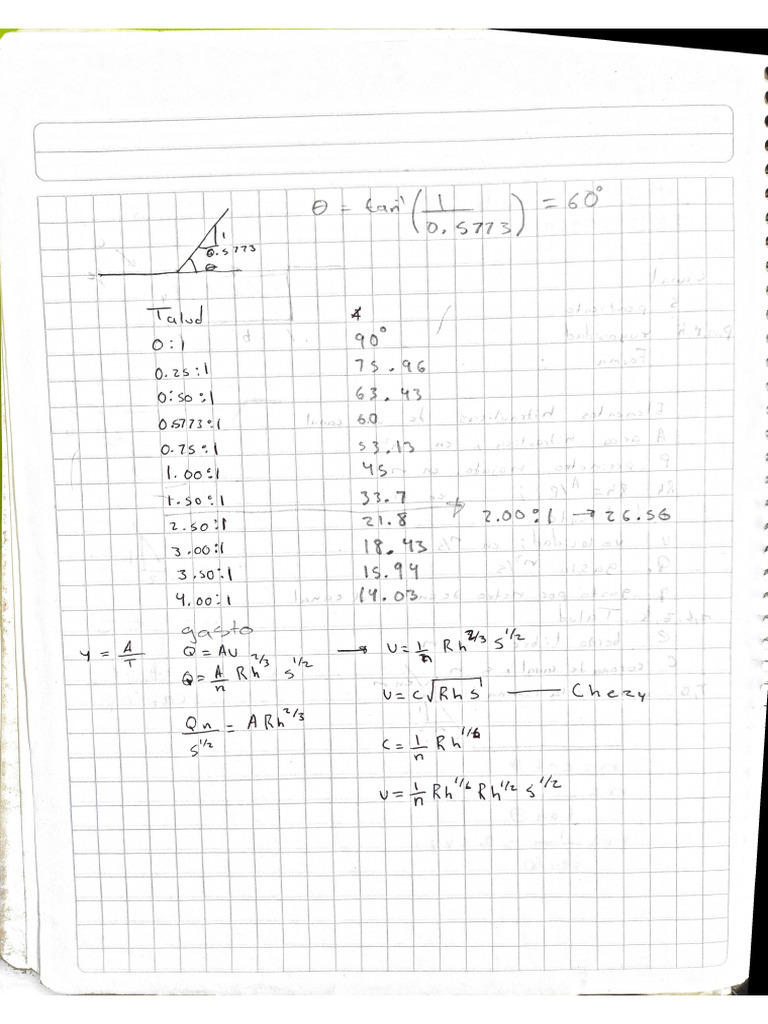 θ = tan⁻¹(1/0.5773) = 60°
1
0.5773
θ
Talud ∡
0:1 90°
0.25:1 75.96
0.50:1 63.43
0.5773:1 60
0.75:1 53.13
1.00:1 45
1.50:1 33.7
2.00:1 → 26.56
2.50:1 21.8
3.00:1 18.43
3.50:1 15.94
4.00:1 14.03
gasto
y = A/T Q = AV → V = 1/n Rh^2/3 S^1/2
Q = A/n Rh^2/3 S^1/2
V = C√(Rh S) — Chezy
Qn/S^1/2 = A Rh^2/3
C = 1/n Rh^1/6
V = 1/n Rh^1/6 Rh^1/2 S^1/2